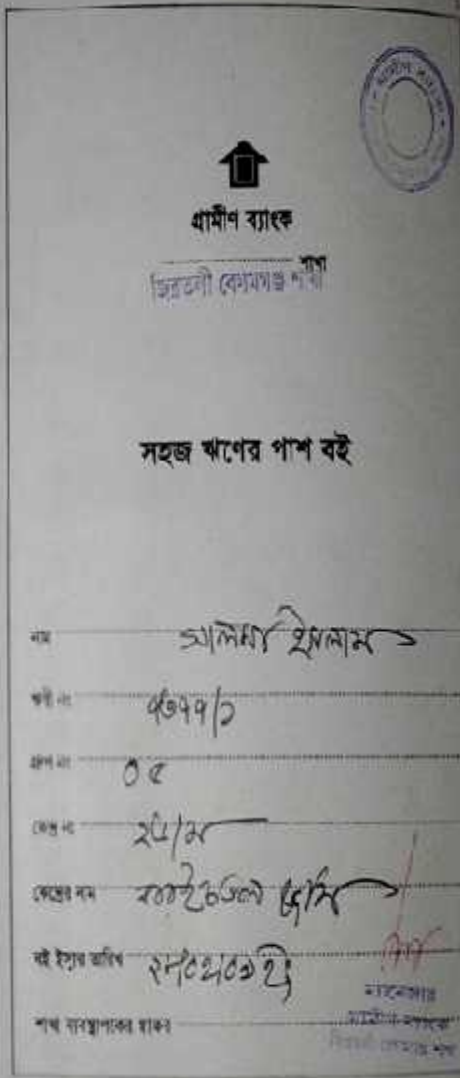 গ্রামীণ ব্যাংক
শাখা
জিরতলী বেগমগঞ্জ শাখা
সহজ ঋণের পাশ বই
নাম সালমা ইসলাম
ঋণী নং ৭৩৭৭/১
গ্রুপ নং ০৫
কেন্দ্র নং ২৫/ম
কেন্দ্রের নাম
বই ইস্যুর তারিখ
শাখা ব্যবস্থাপকের স্বাক্ষর
ম্যানেজার
গ্রামীণ ব্যাংক